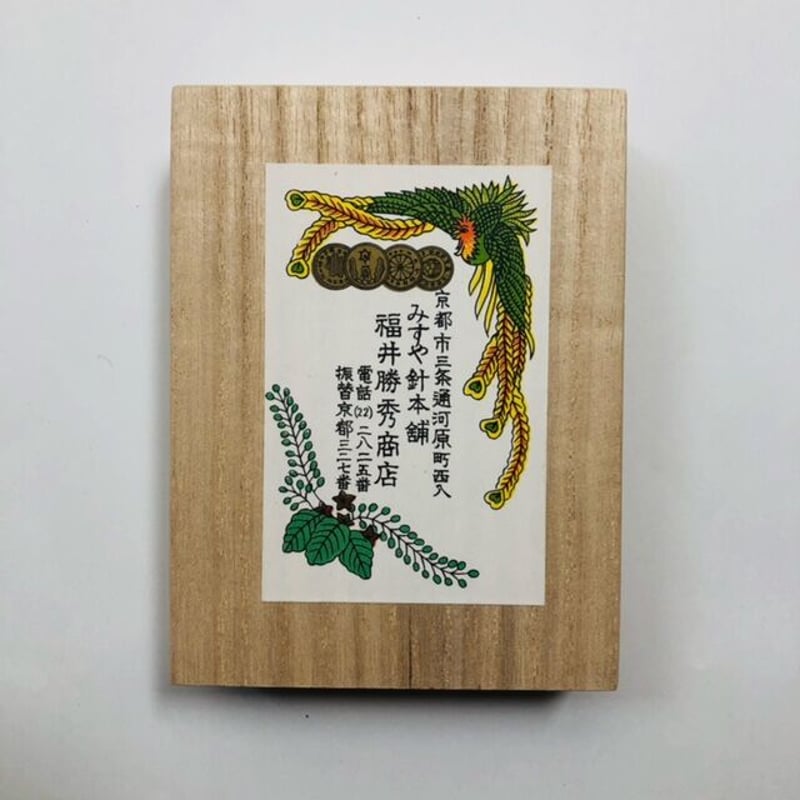 京都市三条通河原町西入
みすや針本舗
福井勝秀商店
電話(22)二八二五番
振替京都三二七番